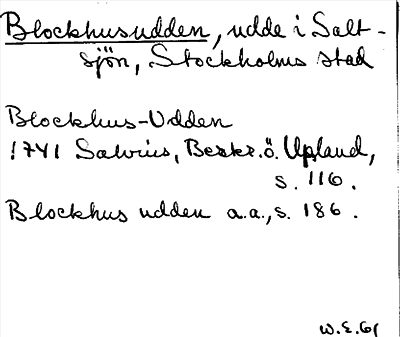 Blockhusudden, udde i Salt-
sjön, Stockholms stad
Blockhus-Udden
1741 Salvius, Beskr. ö. Upland,
s. 116.
Blockhus udden a.a., s. 186.
W.E.61